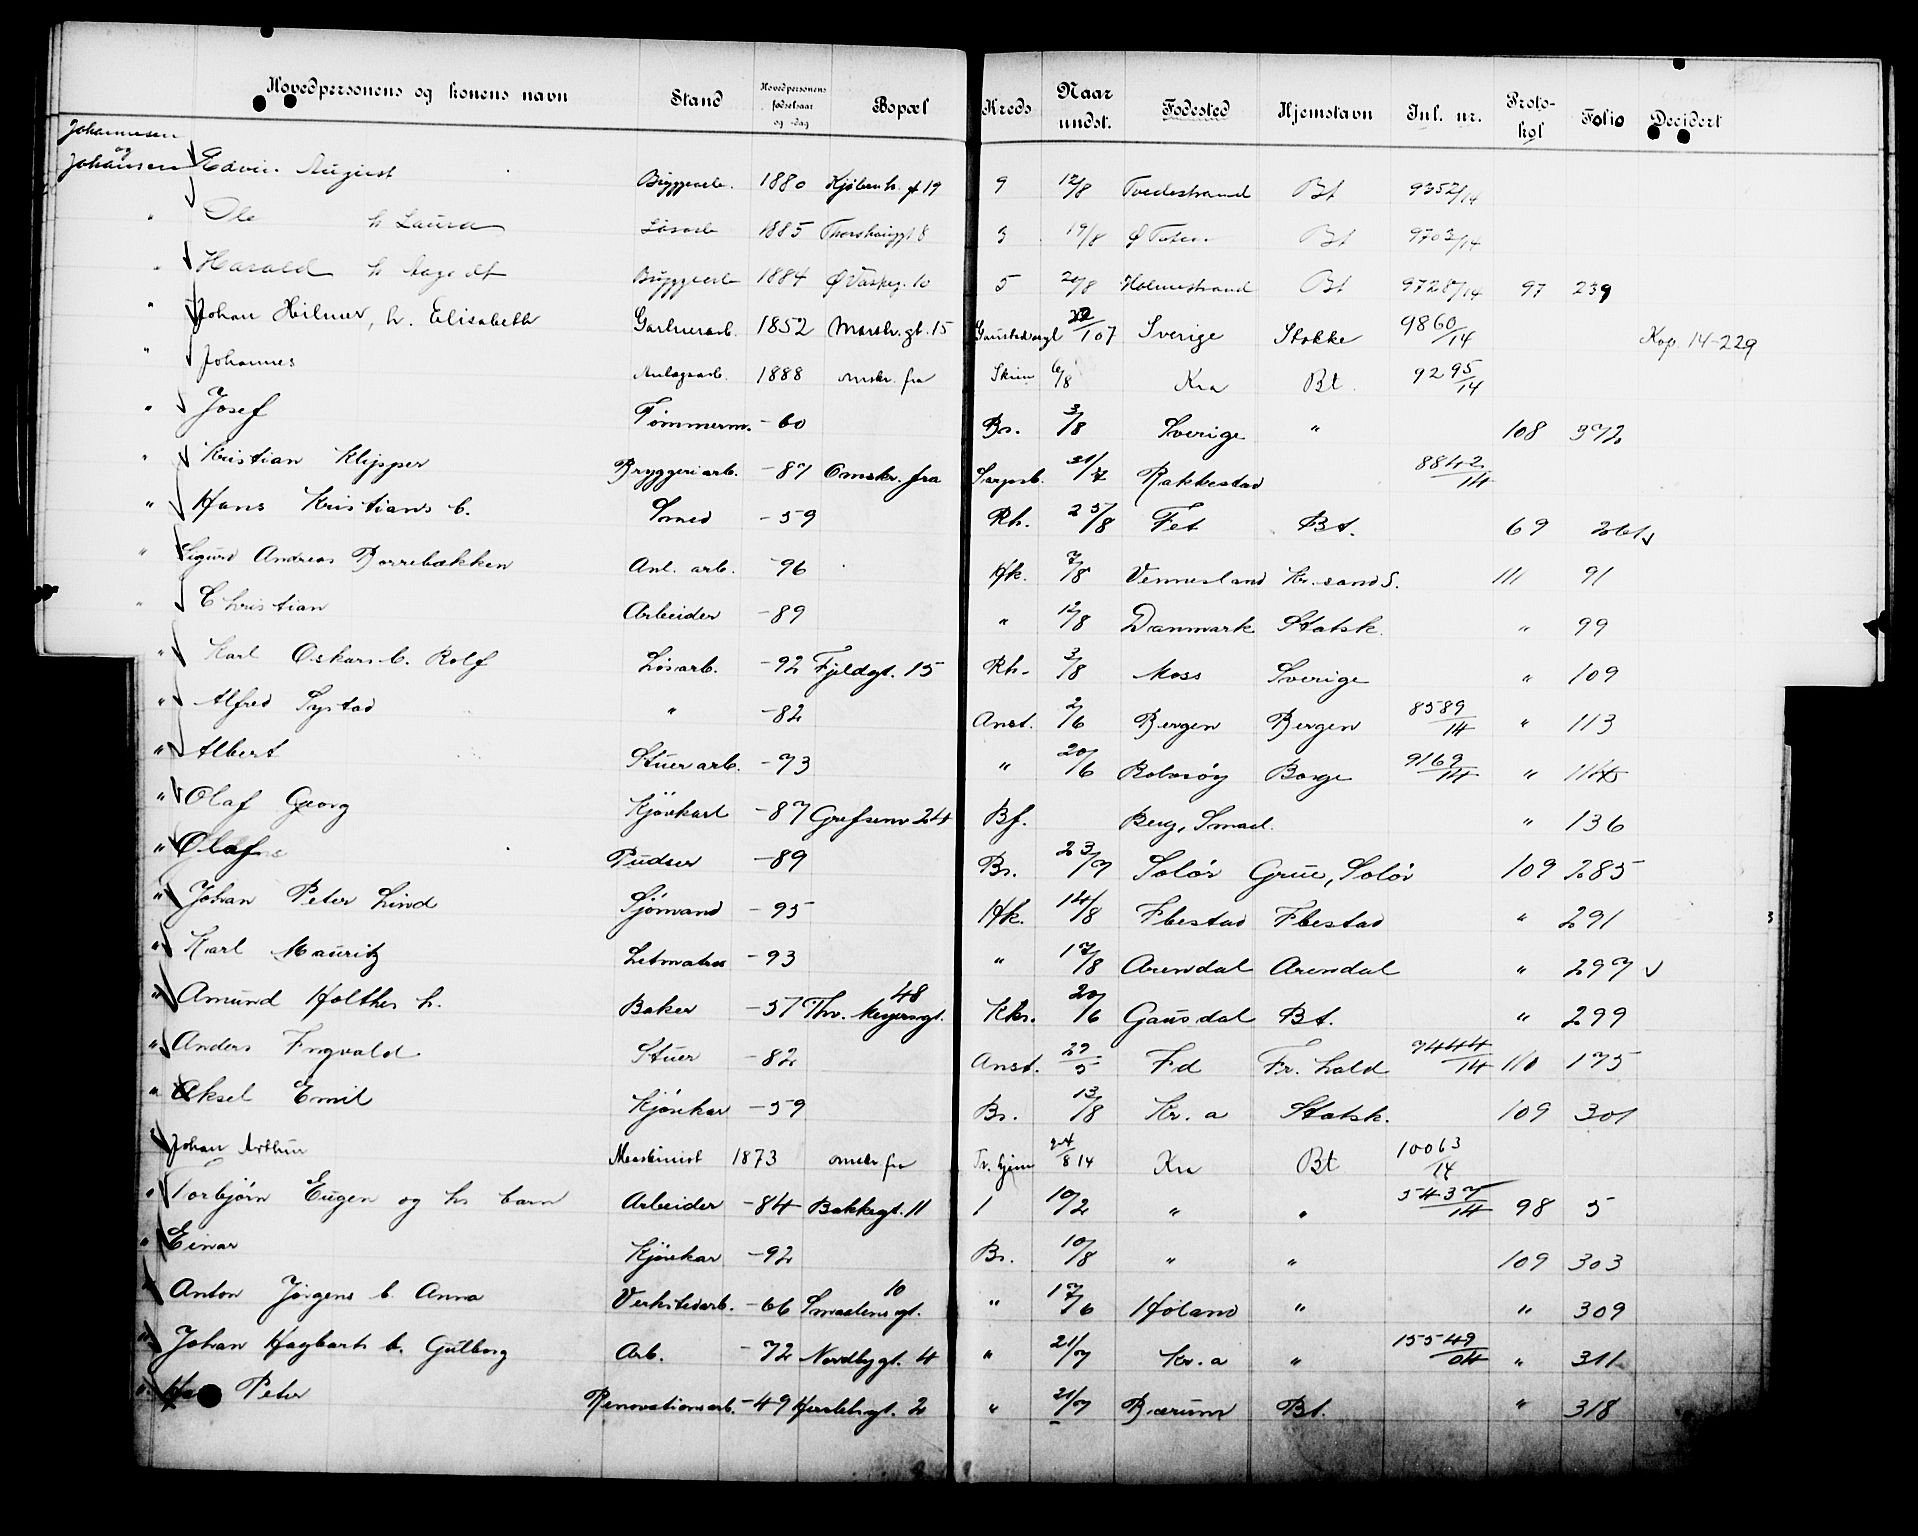 Hovedpersonens og konens navn Stand Hovedpersonens fødselsaar og -dag Bopæl Kreds Naar undst. Fødested Hjemstavn Inl. nr. Protokol Folio Decidert
Johannesen og
Johansen Edvin August Byggearb. 1880 9 12/8 Tvedestrand Bt 9352/14
" Ole h Laura Løsarb 1885 Thorshauggt 8 3 19/8 Ø Toten Bt 9703/14
" Harald Byggearb 1884 5 20/8 Holmestrand Bt 9728/14 97 239
" Johan Hilmer, h. Elisabeth Gartnerarb. 1852 Markv. gt. 15 Sverige Stokke 9860/14 Kop. 14-229
" Johannes Anlægsarb. 1888 omskr. fra Skien 6/8 Kra Bt. 9295/14
" Josef Tømmerm. - 60 Br. 3/8 Sverige " 108 372
" Kristian Klipper Bryggeriarb. - 87 Omskr. fra Sarpsb. 31/7 Rakkestad 8842/14
" Hans Kristians b. Smed - 59 Rh. 25/8 Fet Bt. 69 361
" Sigurd Andreas Borrebækken Anl. arb. - 96 Hk. 7/8 Vennesland Kr. sand S. 111 91
" Christian Arbeider - 89 " 12/8 Danmark Statsk. " 99
" Karl Oskars b. Rolf Løsarb. - 92 Fjeldgt. 15 Rh. 3/8 Moss Sverige " 109
" Alfred Systad " - 82 Anst. 2/6 Bergen Bergen 8589/14 " 113
" Albert Stuerarb. - 73 " 20/6 Rolvsøy Borge 9169/14 "
" Olaf Georg Kjørekarl - 87 Grefsenv 24 Bf. Berg, Smaal. " 136
" Olaf Pudser - 89 Br. 23/7 Solør Grue, Solør 109 285
" Johan Peter Lind Sjømand - 95 Hk. 14/8 Flbestad Flbestad " 291
" Karl Mauritz Letmatros - 93 " 17/8 Arendal Arendal " 297
" Amund Holthes h. Baker - 57 Thv. Meyersgt. 48 Kks. 20/6 Gausdal Bt. " 299
" Anders Ingvald Stuer - 82 Anst. 29/5 Fd Fr. hald 7444/14 110 175
" Aksel Emil Kjørekar - 59 Br. 13/8 Kr. a Statsk. 109 301
" Johan Arthur Maskinist 1873 omskr fra Tr. hjem 24/8 14 Kra Bt 10063/14
" Torbjørn Eugen og hs barn Arbeider - 84 Bakkegt. 11 1 10/2 " " 5437/14 98 5
" Einar Kjørekar - 92 Br. 10/8 " " 109 303
" Anton Jørgens b. Anna Verkstedarb. - 66 Smaalensgt. 10 " 17/6 Høland " " 309
" Johan Hagbarts b. Gutborg Arb. - 72 Nordbygt. 4 " 21/7 Kr. a " 15549/04 " 311
" Peter Renovationsarb. - 49 Herslebsgt. 2 " 21/7 Bærum Bt. " 318